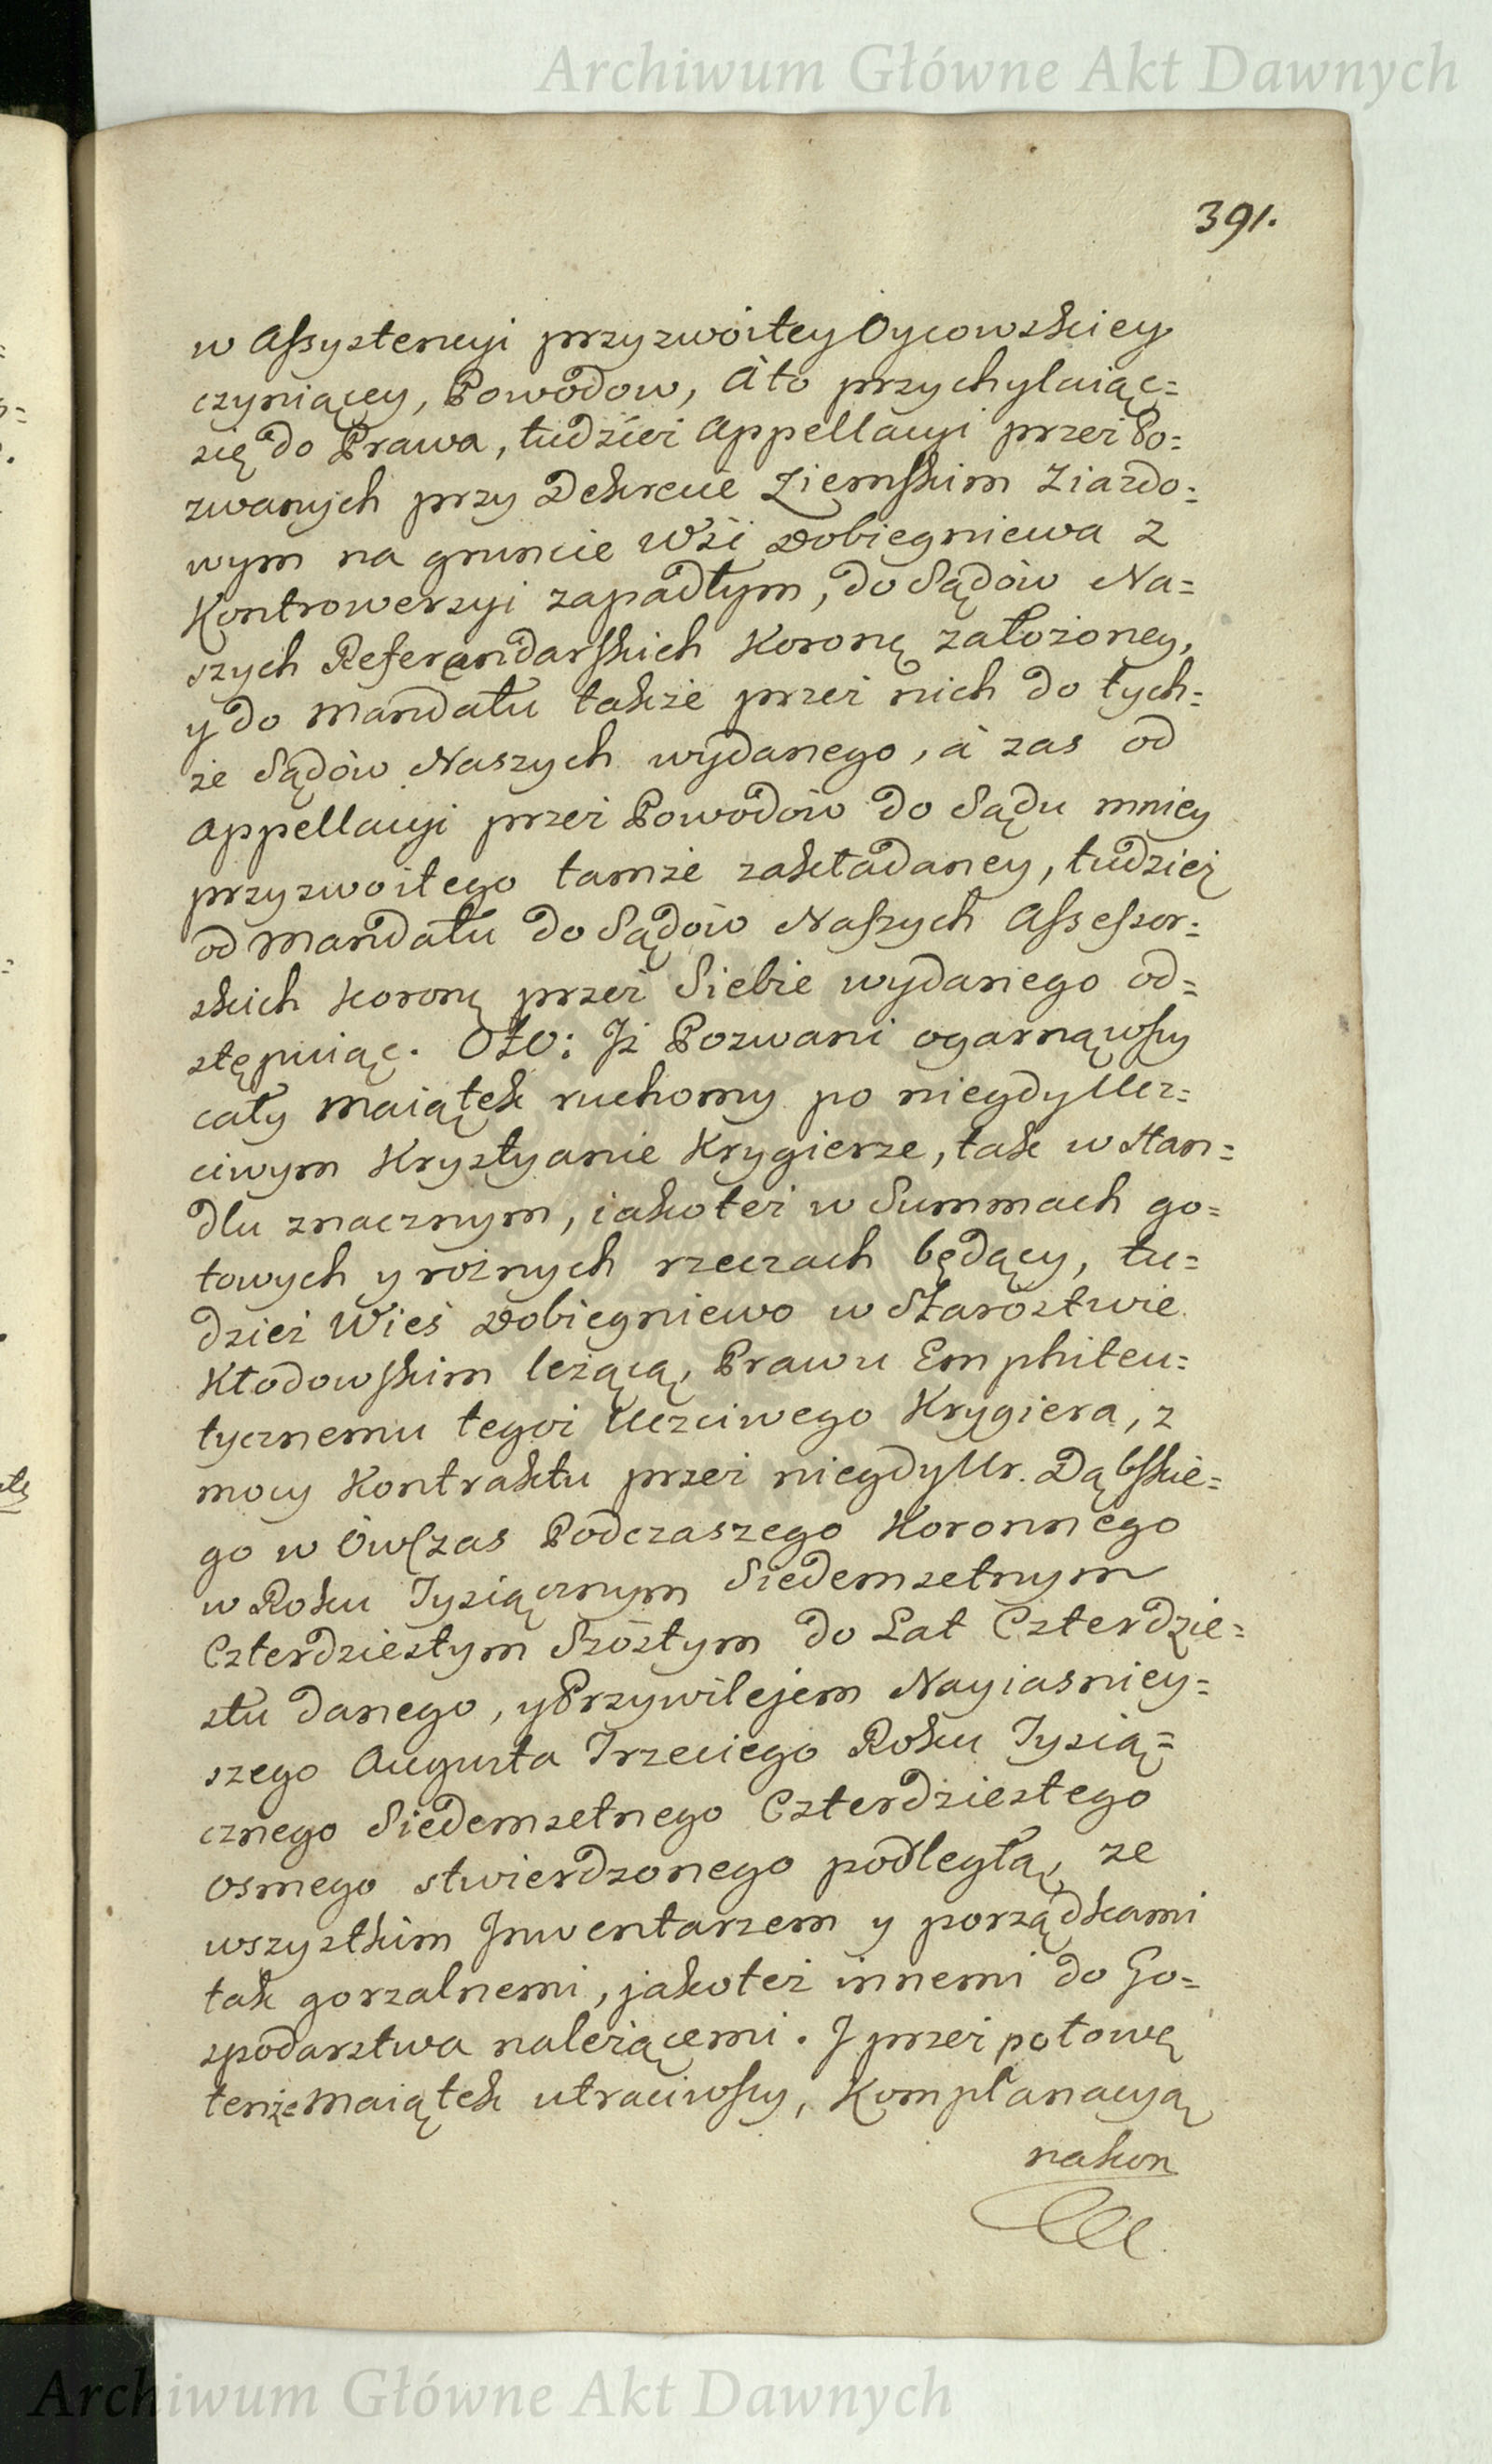 Archiwum Główne Akt Dawnych
391.
w Assystencyi przyzwoitey Oycowskiey
czyniącey, Powodow, A to przychylaiąc=
się do Prawa, tudzież Appellacyi przez Po=
zwanych przy Dekrecie Ziemskim Ziazdo=
wym na gruncie Wsi Dobiegniewa z
Kontrowersyi zapadłym, do Sądow Na=
szych Referendarskich Koronę założoney,
y do Mandatu także przez nich do tych=
że Sądów Naszych wydanego, á zas od
Appellacyi przez Powodów do Sądu mniey
przyzwoitego tamże zakładaney, tudzież
od Mandatu do Sądów Naszych Assessor=
skich Koronę przez Siebie wydanego od=
stępuiąc. Oto: Iż Pozwani ogarnąwszy
cały Maiątek ruchomy po niegdy Ucz=
ciwym Krystyanie Krygierze, tak w Han=
dlu znacznym, iakoteż w Summach go=
towych y rożnych rzeczach będący, tu=
dzież Wieś Dobiegniewo w Starostwie
Kłodowskim leżącą, Prawu Emphiteu=
tycznemu tegoż Uczciwego Krygiera, z
mocy Kontraktu przez niegdy Ur. Dąbskie=
go w Ówczas Podczaszego Koronnego
w Roku Tysiącznym Siedemsetnym
Czterdziestym Szóstym do Lat Czterdzie=
stu danego, y Przywilejem Nayiasniey=
szego Augusta Trzeciego Roku Tysią=
cznego Siedemsetnego Czterdziestego
Osmego stwierdzonego podległą, ze
wszystkim Inwentarzem y porządkami
tak gorzalnemi, jakoteż innemi do Go=
spodarstwa należącemi. I przez połowę
tenże Maiątek utraciwszy, Komplanacyą
nakon
Archiwum Główne Akt Dawnych